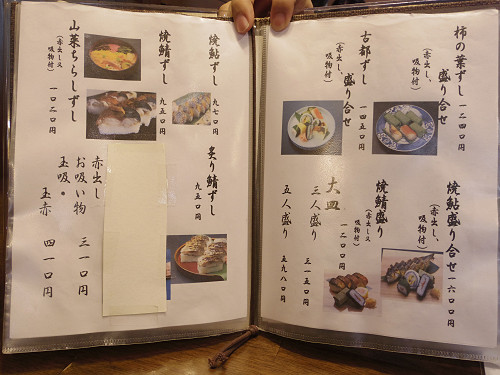 柿の葉ずし
盛り合せ
一二四〇円
(赤出し、
吸物付)
古都ずし
盛り合せ
一四五〇円
(赤出し、
吸物付)
焼鮎盛り合せ
一六〇〇円
(赤出し、
吸物付)
焼鯖盛り合せ
一二〇〇円
(赤出し又
吸物付)
大皿
三人盛り 三一五〇円
五人盛り 五九八〇円
焼鮎ずし 九七〇円
焼鯖ずし 九五〇円
山菜ちらしずし 一〇二〇円
(赤出し又
吸物付)
炙り鯖ずし 九五〇円
赤出し
お吸い物 三一〇円
玉吸・
玉赤 四一〇円